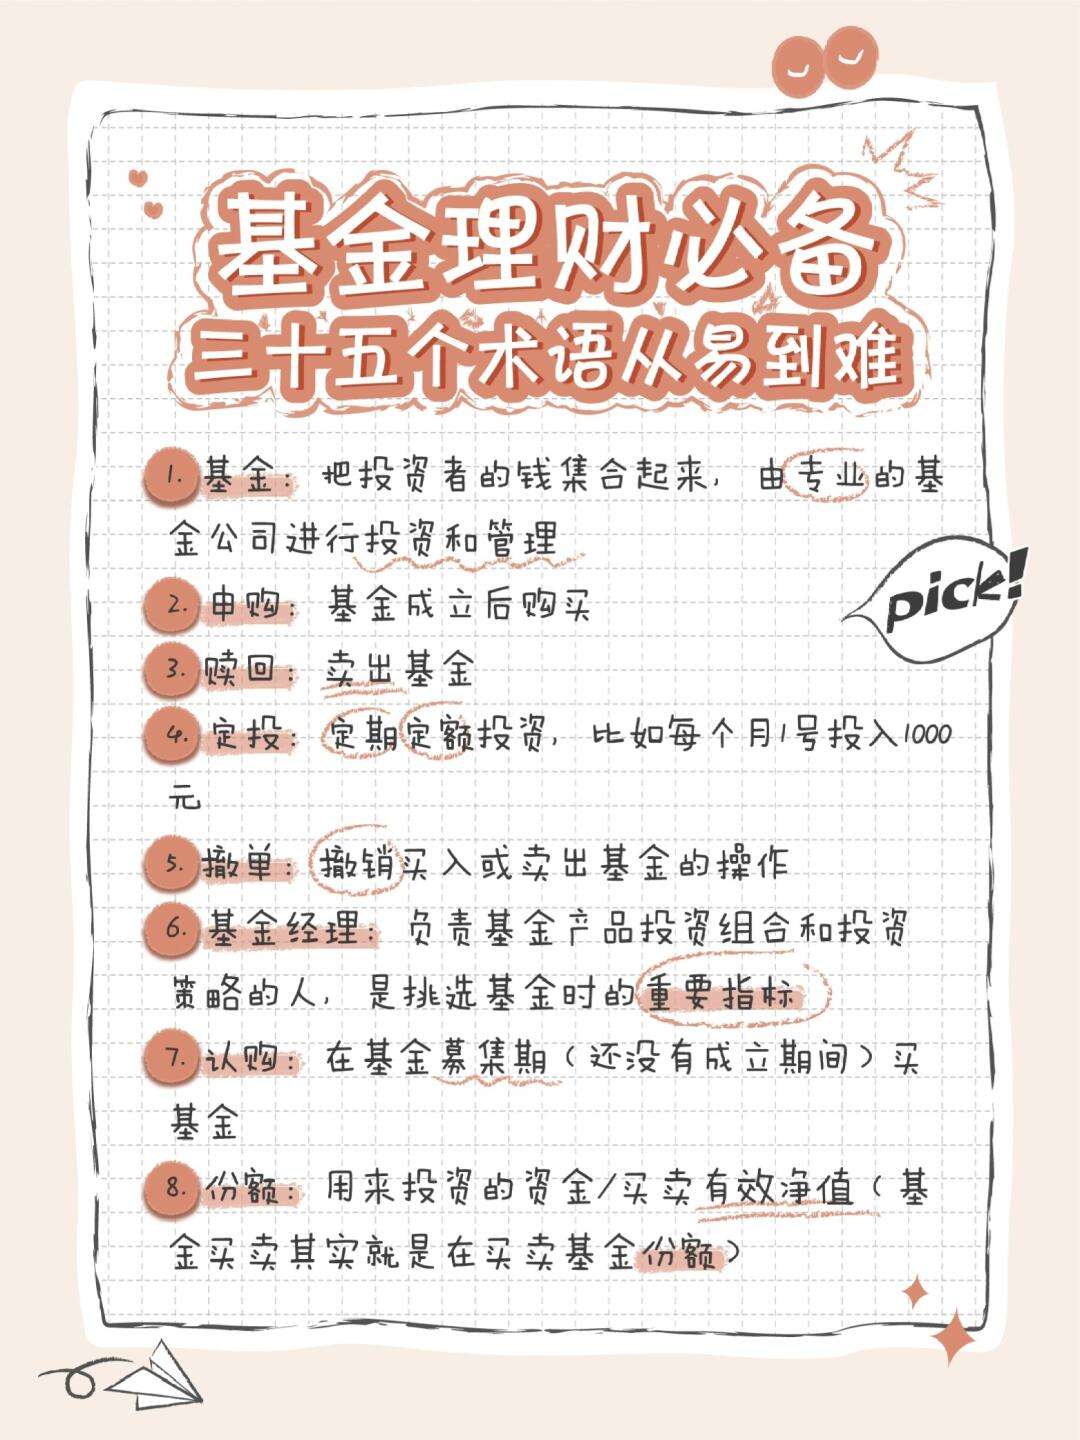 基金理财必备
三十五个术语从易到难
1. 基金：把投资者的钱集合起来，由专业的基
金公司进行投资和管理
2. 申购：基金成立后购买
pick!
3. 赎回：卖出基金
4. 定投：定期定额投资，比如每个月1号投入1000
元
5. 撤单：撤销买入或卖出基金的操作
6. 基金经理：负责基金产品投资组合和投资
策略的人，是挑选基金时的重要指标
7. 认购：在基金募集期（还没有成立期间）买
基金
8. 份额：用来投资的资金/买卖有效净值（基
金买卖其实就是在买卖基金份额）